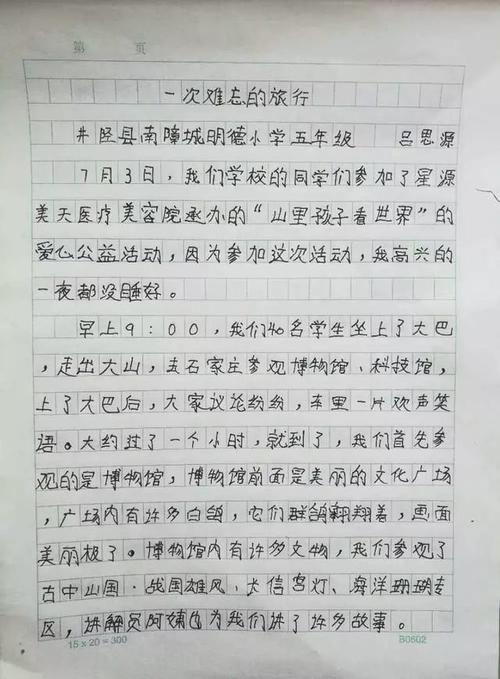 第 页
一次难忘的旅行
井陉县南障城明德小学五年级 吕思源
7月3日，我们学校的同学们参加了星源
美天医疗美容院承办的“山里孩子看世界”的
爱心公益活动，因为参加这次活动，我高兴的
一夜都没睡好。
早上9:00，我们40名学生坐上了大巴
，走出大山，去石家庄参观博物馆、科技馆，
上了大巴后，大家议论纷纷，车里一片欢声笑
语。大约过了一个小时，就到了，我们首先参
观的是博物馆，博物馆前面是美丽的文化广场
，广场内有许多白鸽，它们群鸽翱翔着，画面
美丽极了。博物馆内有许多文物，我们参观了
古中山国·战国雄风、长信宫灯、海洋珊瑚专
区，讲解员阿姨也为我们讲了许多故事。
15×20=300 B0602